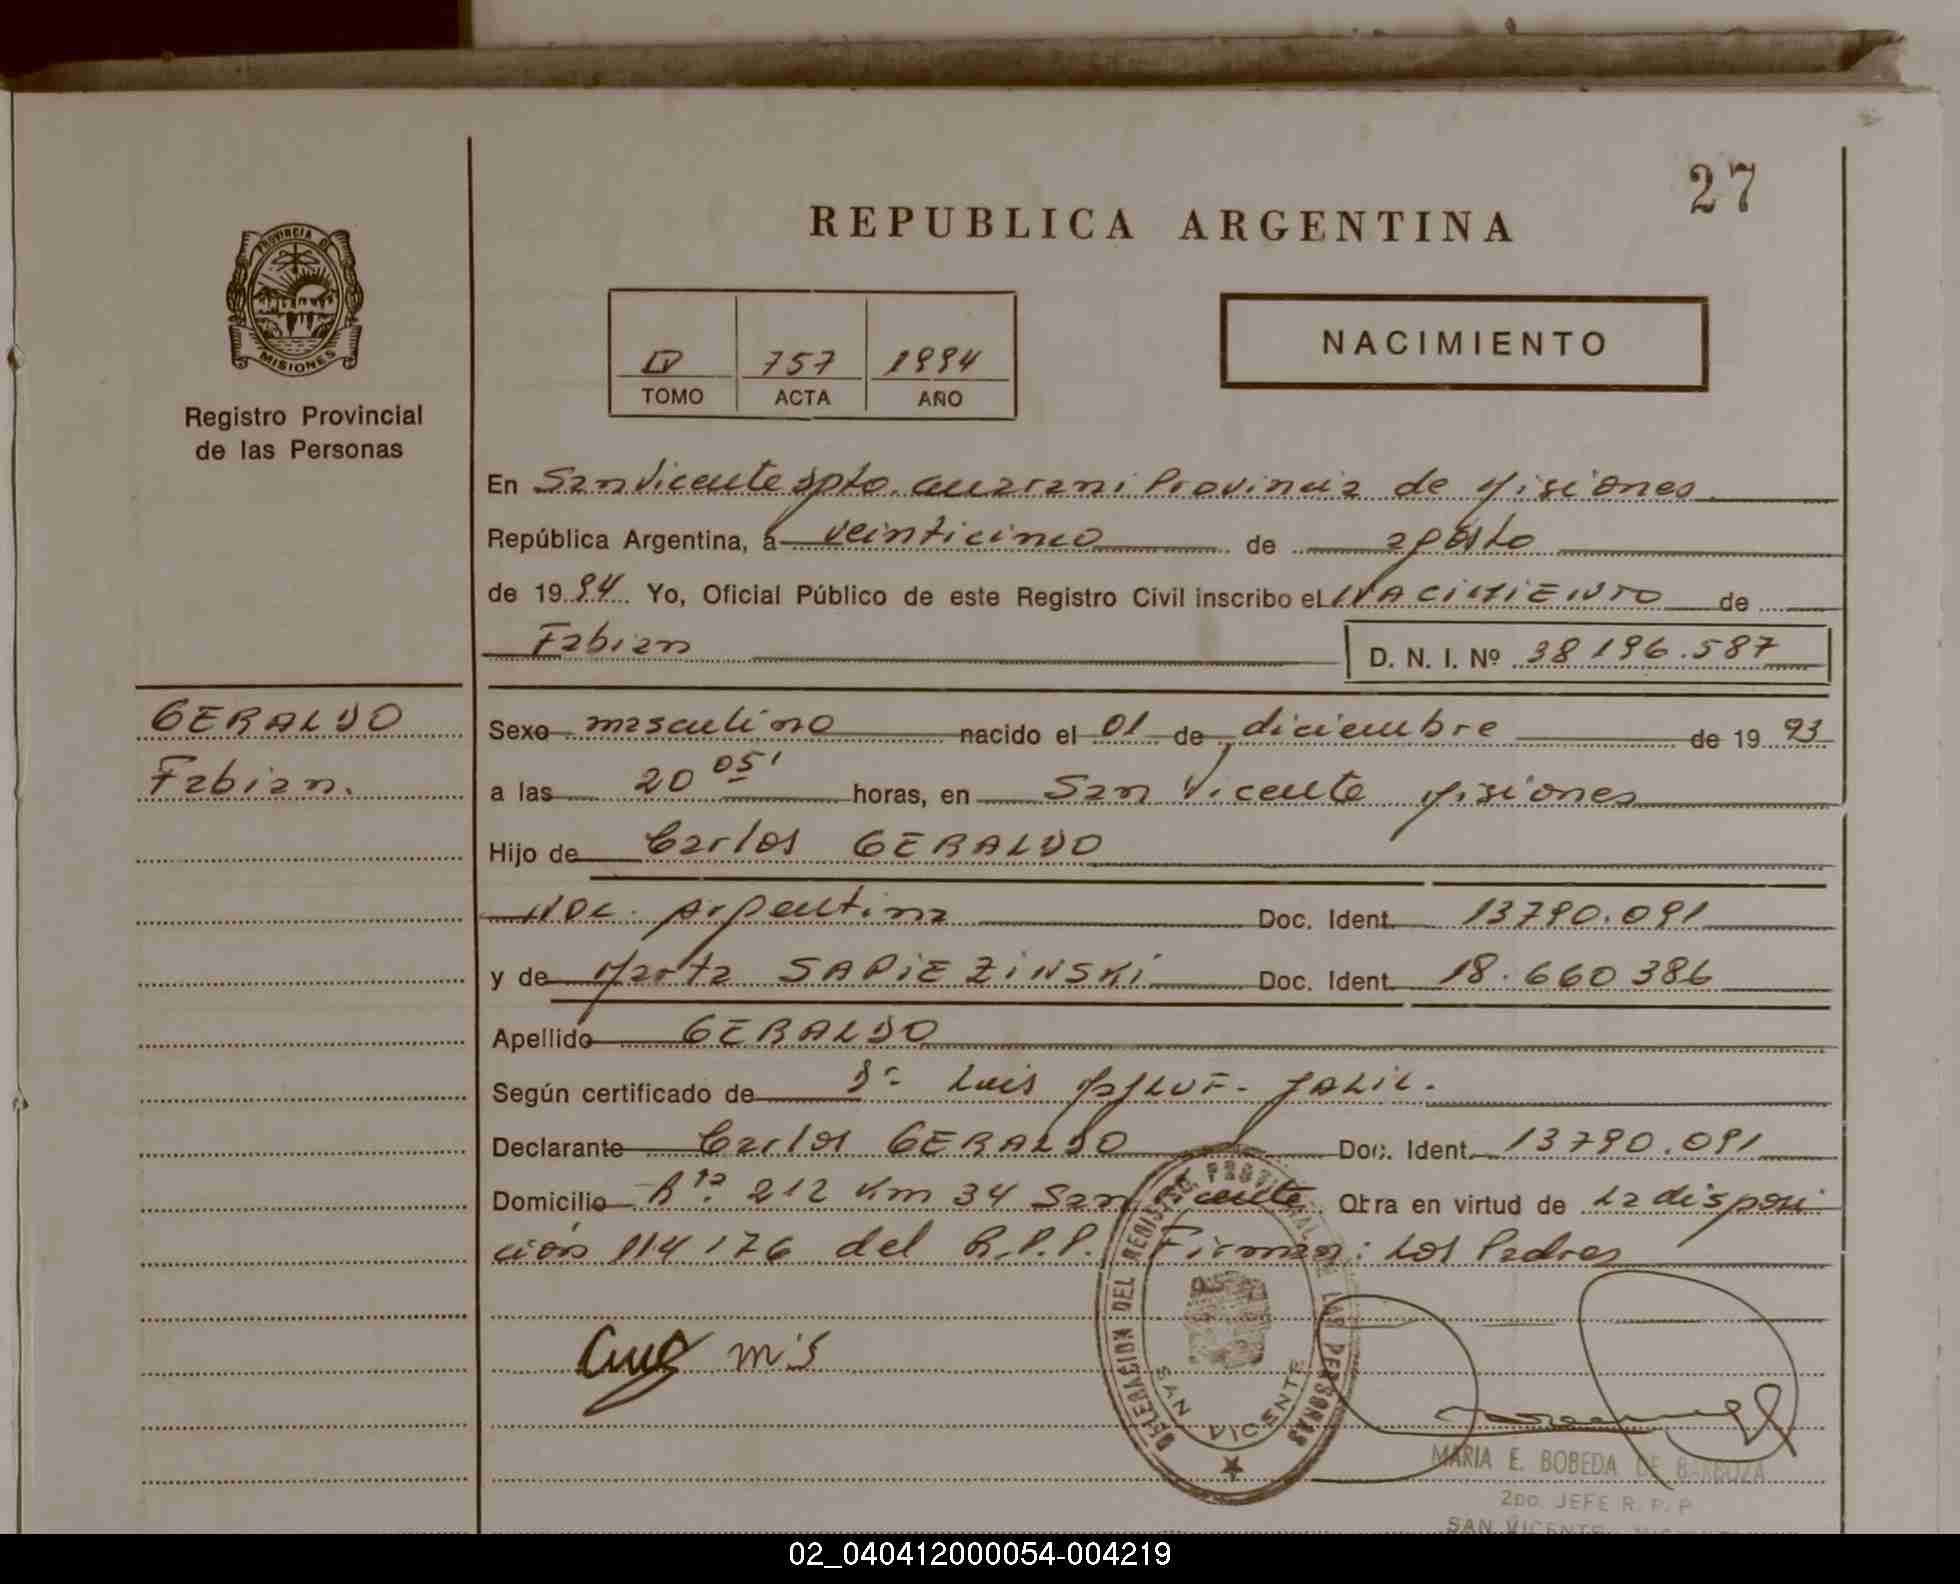 27
REPUBLICA ARGENTINA
PROVINCIA DE
MISIONES
IV 757 1994
TOMO ACTA AÑO
NACIMIENTO
Registro Provincial
de las Personas
En San Vicente dpto. Guarani Provincia de Misiones
República Argentina, a veinticinco de agosto
de 1994 Yo, Oficial Público de este Registro Civil inscribo el NACIMIENTO de
Fabian D. N. I. Nº 38196.587
GERALDO
Fabian.
Sexo masculino nacido el 01 de diciembre de 1993
a las 20 05' horas, en San Vicente Misiones
Hijo de Carlos GERALDO
Nac. Argentina Doc. Ident. 13790.091
y de Marta SAPIEZINSKI Doc. Ident. 18.660386
Apellido GERALDO
Según certificado de Dr. Luis JALIL.
Declarante Carlos GERALDO Doc. Ident. 13790.091
Domicilio Rta. 212 Km 34 San Vicente Otra en virtud de La disposi
ción 114176 del R.P.P. Firman: Los Padres
DELEGACION DEL REGISTRO PROVINCIAL DE LAS PERSONAS
SAN VICENTE
MARIA E. BOBEDA DE BARBOZA
2do. JEFE R. P. P
SAN VICENTE
02_040412000054-004219